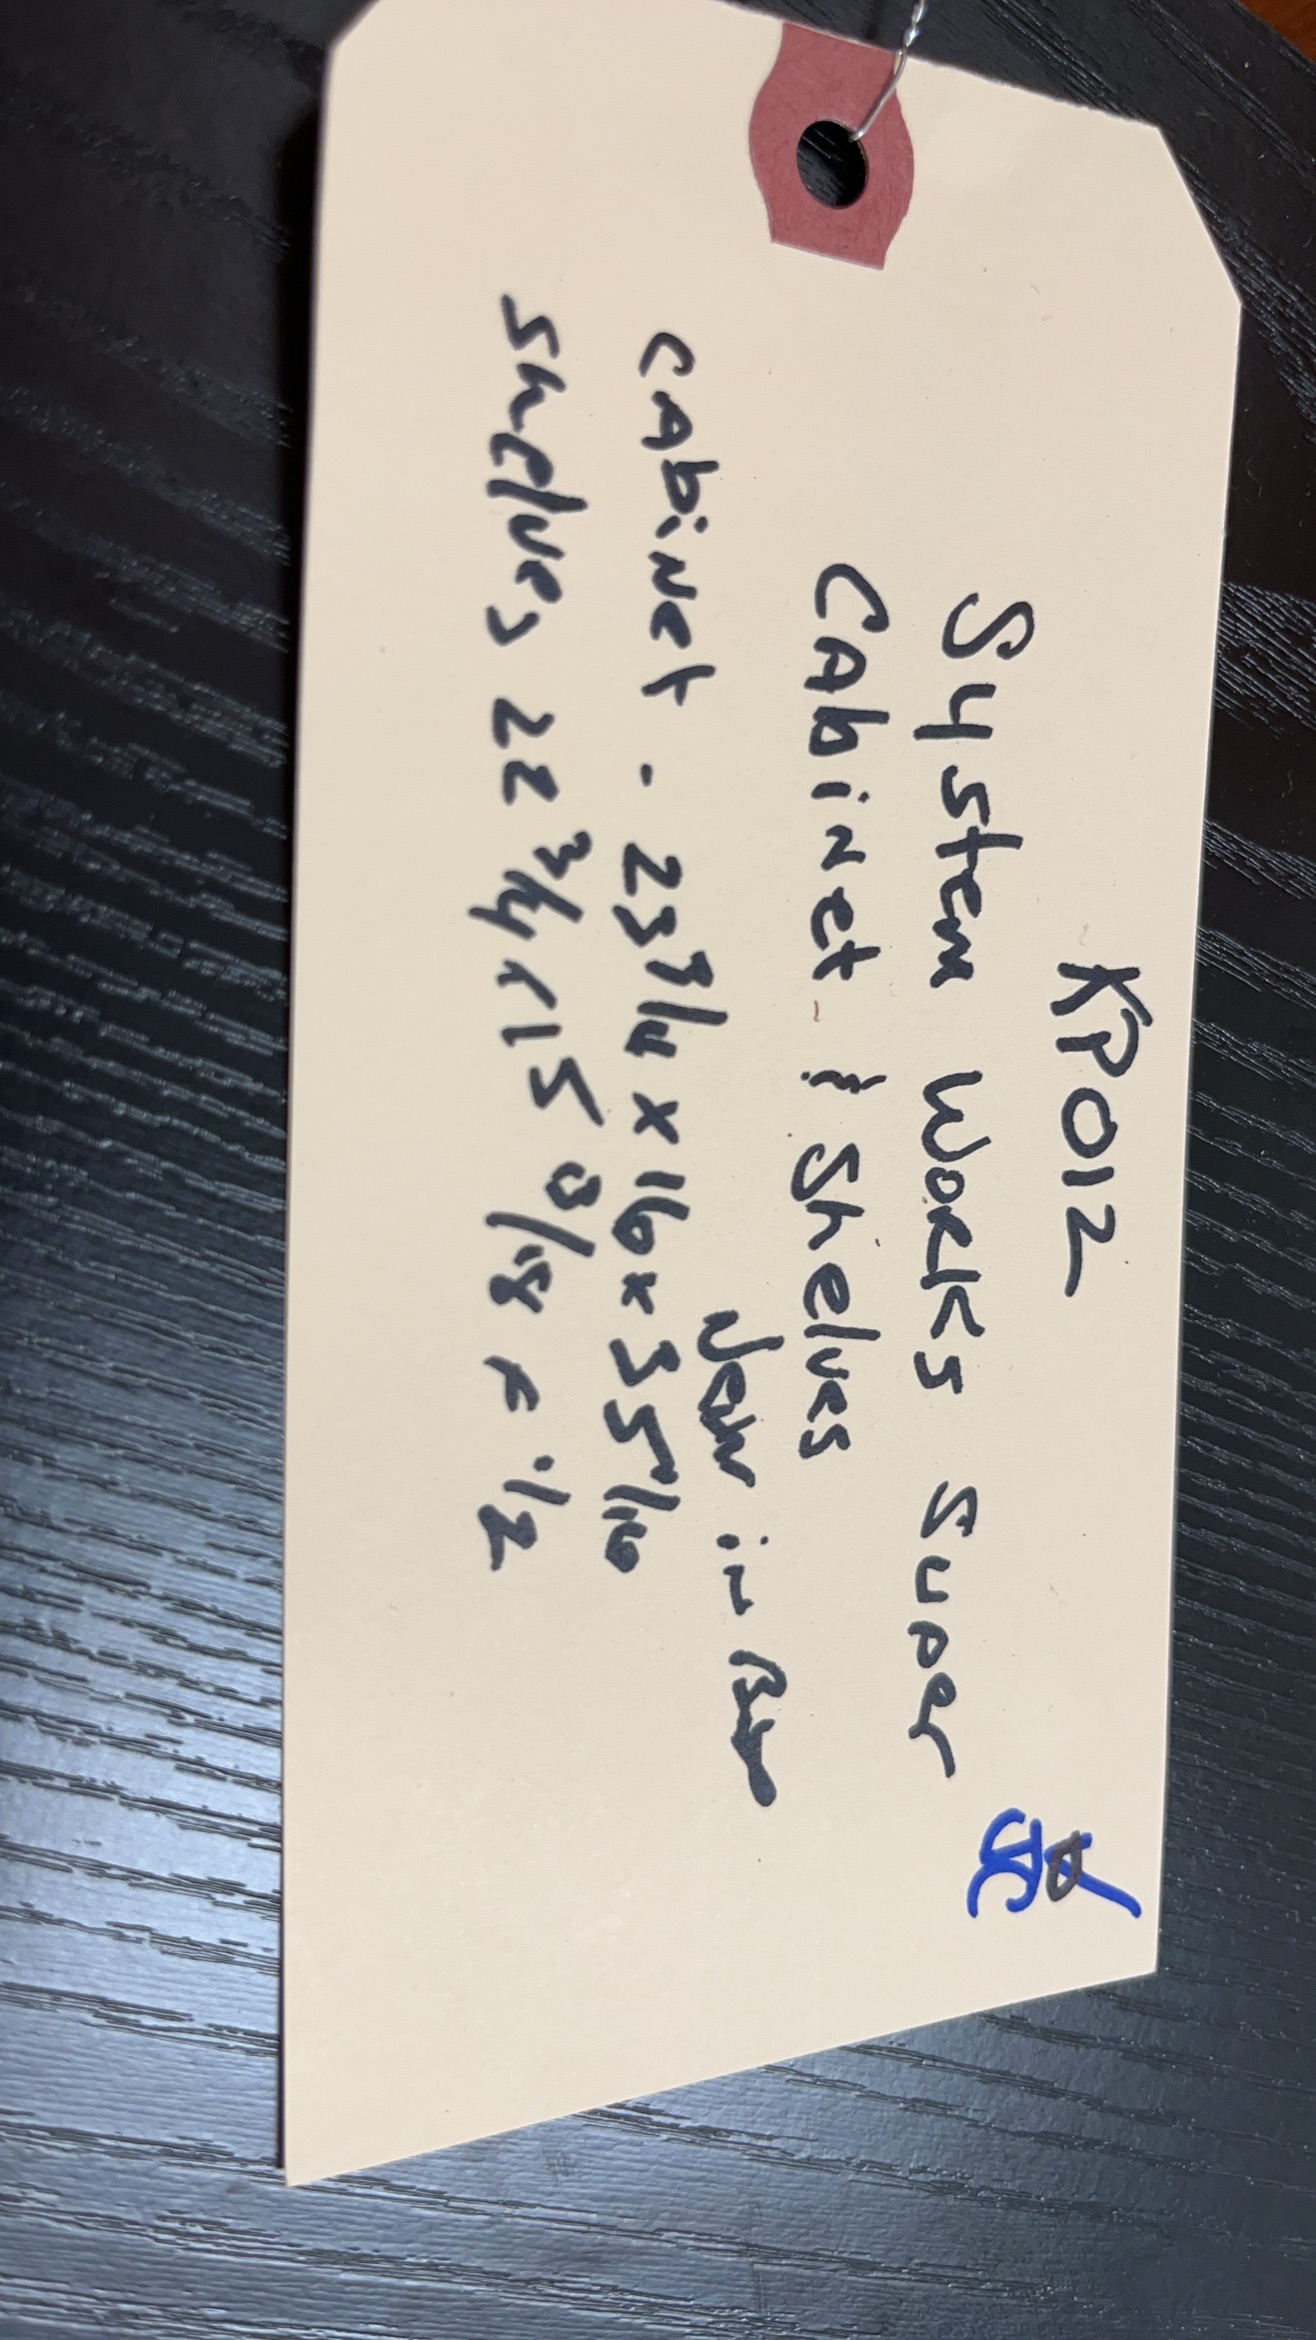 KP012
System Works Super
Cabinet & Shelves
New in Box
Cabinet - 23 3/4 x 16 x 35 1/16
Shelves 22 3/4 x 15 x 1/2